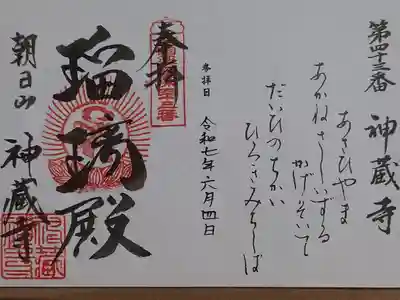 第四十三番 神蔵寺
あさひやま
あかねさしいずる
かげそいて
だいひのちかい
ひろきみちしば
参拝日 令和七年六月四日
奉拝
瑠璃殿
朝日山 神蔵寺